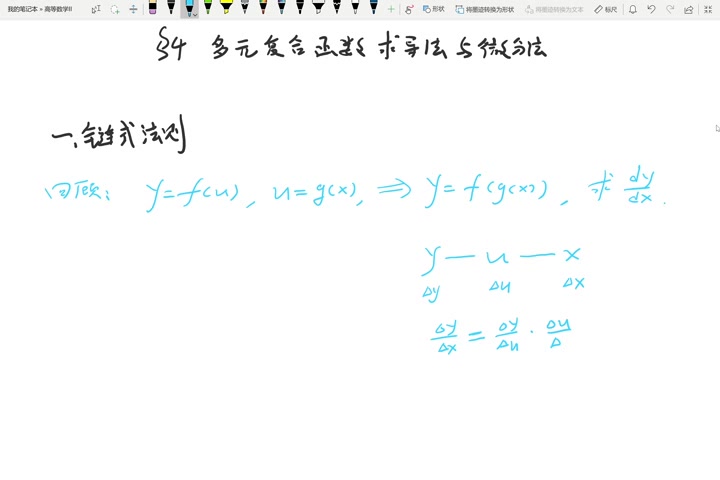 我的笔记本 » 高等数学II
形状 将墨迹转换为形状 将墨迹转换为文本 标尺
§4 多元复合函数求导法与微分法
一、链式法则
回顾: y=f(u), u=g(x), ⇒ y=f(g(x)), 求 dy/dx.
y — u — x
Δy Δu Δx
Δy/Δx = Δy/Δu · Δu/Δ